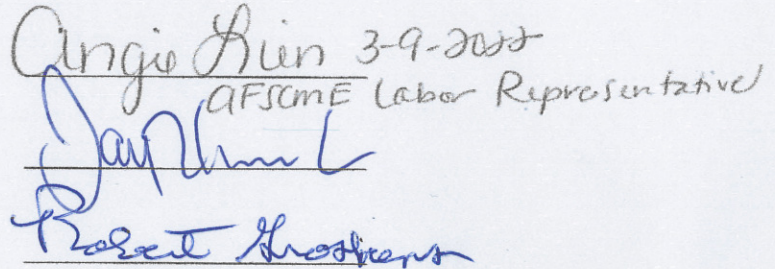 Angie Lien 3-9-2022
AFSCME Labor Representative
Jay
Robert